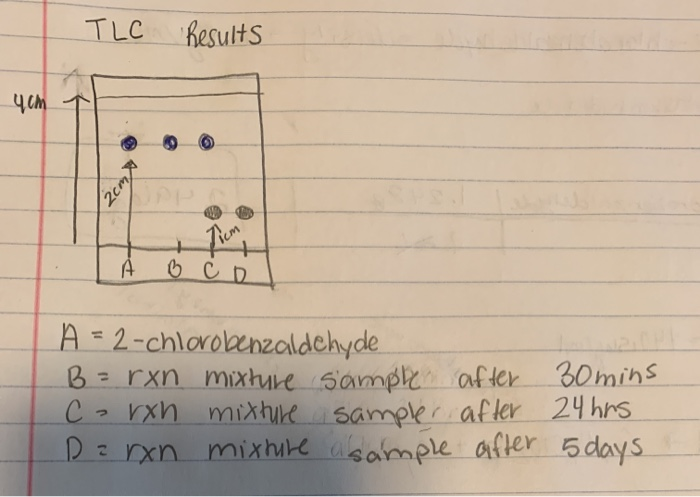 TLC Results
4cm
2cm
1cm
A B C D
A = 2-chlorobenzaldehyde
B = rxn mixture sample after 30mins
C = rxn mixture sample after 24hrs
D = rxn mixture sample after 5days